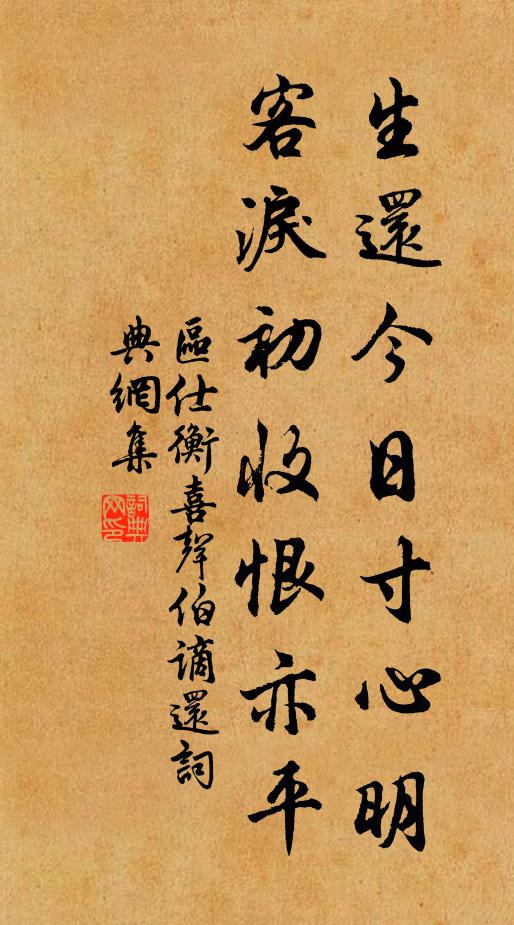 生還今日寸心明
客淚初收恨亦平
區仕衡喜聲伯謫還詞
典網集
詞典網印